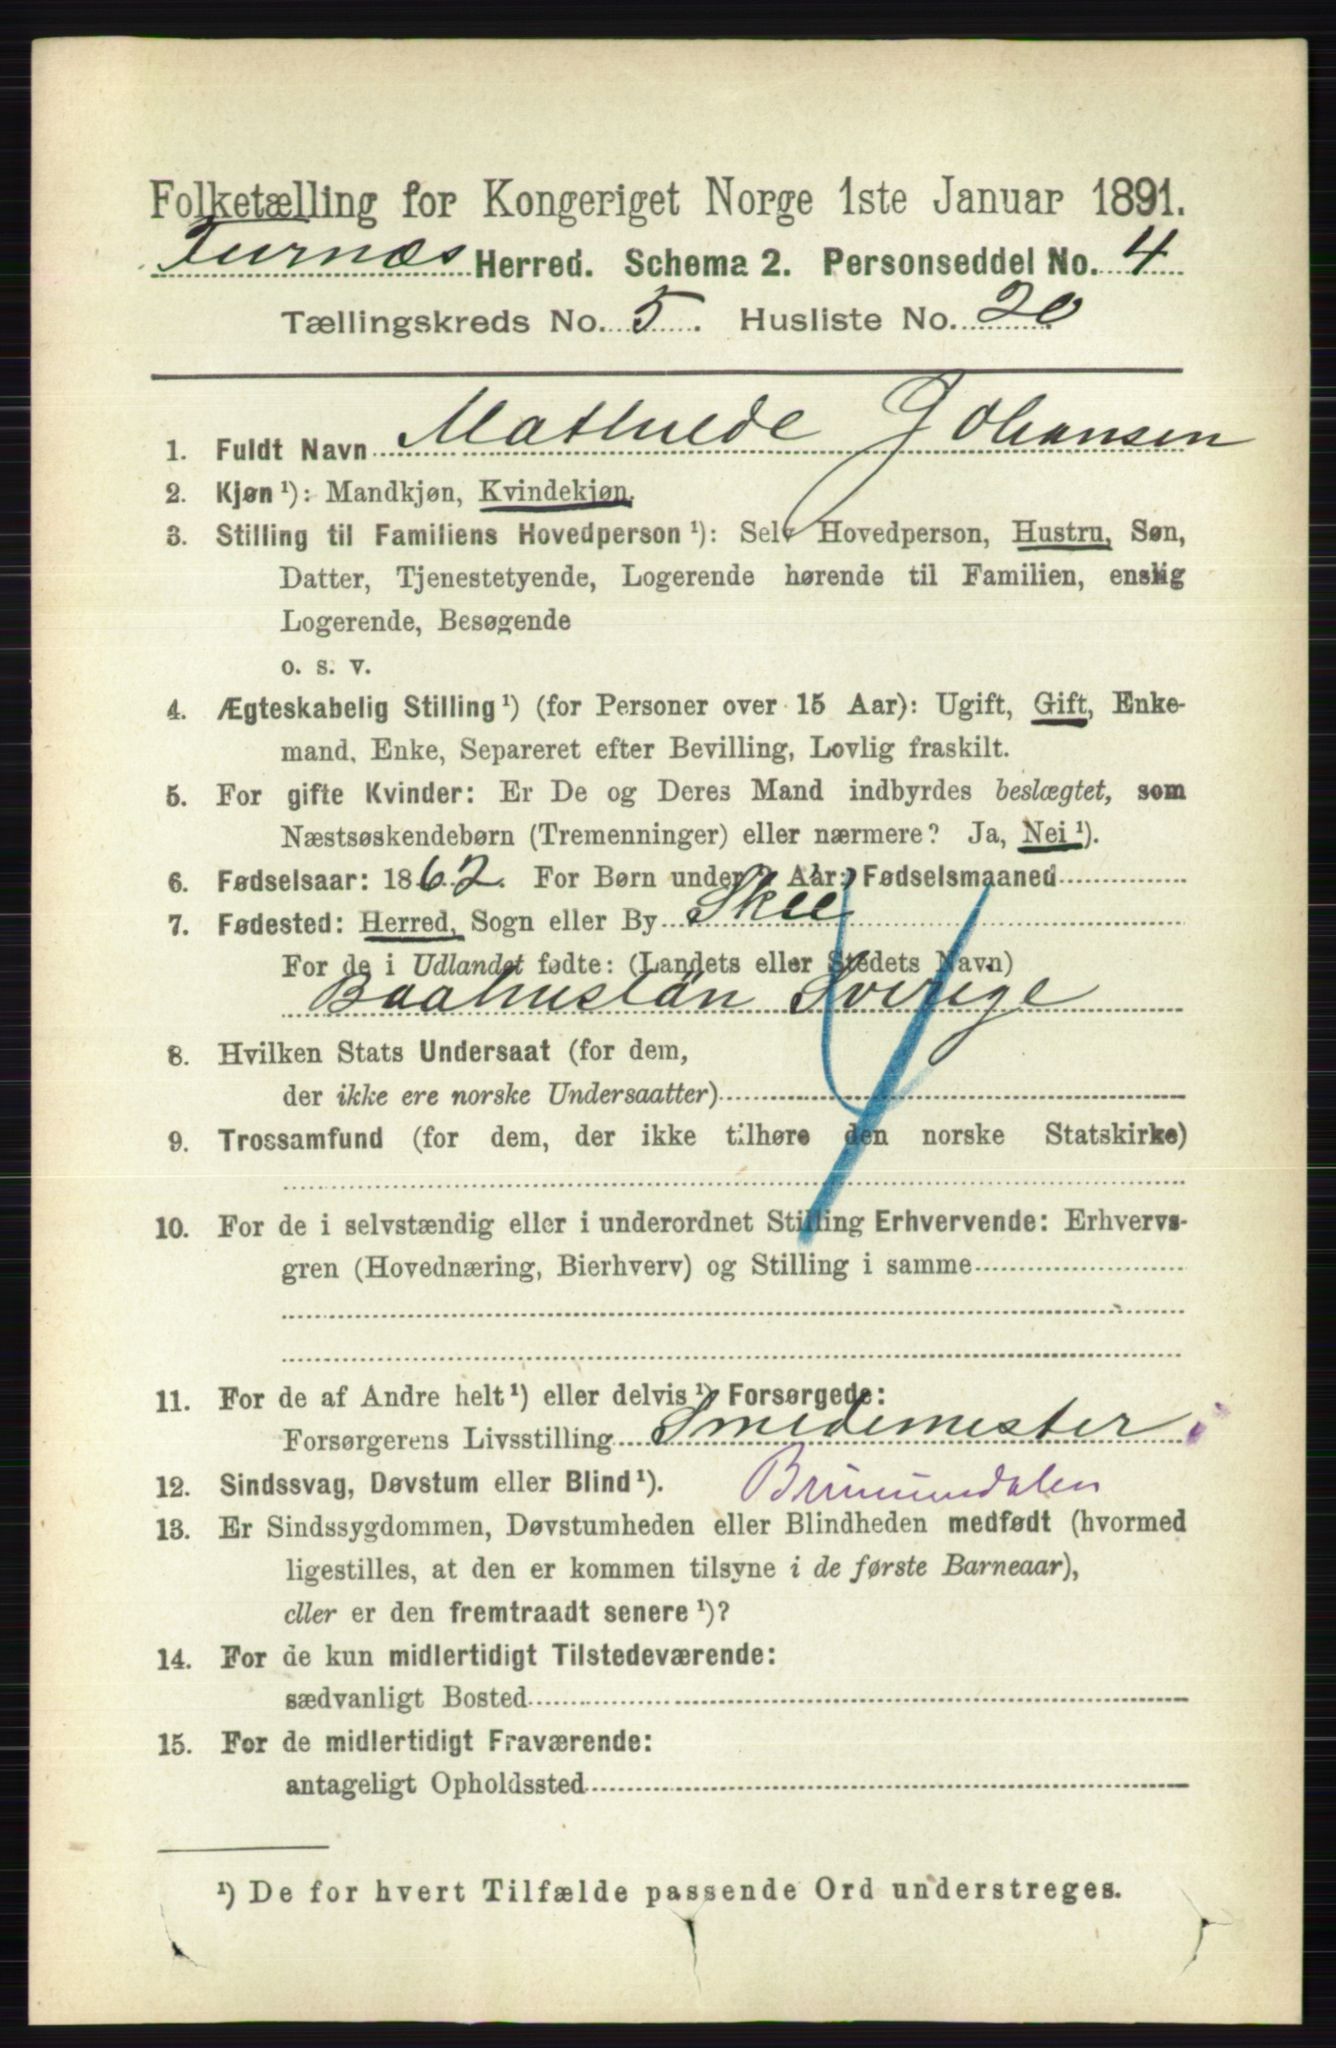 Folketælling for Kongeriget Norge 1ste Januar 1891.
Furnæs Herred. Schema 2. Personseddel No. 4
Tællingskreds No. 5. Husliste No. 20
1. Fuldt Navn Mathilde Johansen
2. Kjøn ¹): Mandkjøn, Kvindekjøn.
3. Stilling til Familiens Hovedperson ¹): Selv Hovedperson, Hustru, Søn,
Datter, Tjenestetyende, Logerende hørende til Familien, enslig
Logerende, Besøgende
o. s. v.
4. Ægteskabelig Stilling ¹) (for Personer over 15 Aar): Ugift, Gift, Enke-
mand, Enke, Separeret efter Bevilling, Lovlig fraskilt.
5. For gifte Kvinder: Er De og Deres Mand indbyrdes beslægtet, som
Næstsøskendebørn (Tremenninger) eller nærmere? Ja, Nei ¹).
6. Fødselsaar: 1862. For Børn under 2 Aar: Fødselsmaaned
7. Fødested: Herred, Sogn eller By Skee
For de i Udlandet fødte: (Landets eller Stedets Navn)
Baahuslän Sverige
8. Hvilken Stats Undersaat (for dem,
der ikke ere norske Undersaatter)
9. Trossamfund (for dem, der ikke tilhøre den norske Statskirke)
10. For de i selvstændig eller i underordnet Stilling Erhvervende: Erhvervs-
gren (Hovednæring, Bierhverv) og Stilling i samme
11. For de af Andre helt ¹) eller delvis ¹) Forsørgede:
Forsørgerens Livsstilling Smedemester i
12. Sindssvag, Døvstum eller Blind ¹). Brumunddalen
13. Er Sindssygdommen, Døvstumheden eller Blindheden medfødt (hvormed
ligestilles, at den er kommen tilsyne i de første Barneaar),
eller er den fremtraadt senere ¹)?
14. For de kun midlertidigt Tilstedeværende:
sædvanligt Bosted
15. For de midlertidigt Fraværende:
antageligt Opholdssted
¹) De for hvert Tilfælde passende Ord understreges.